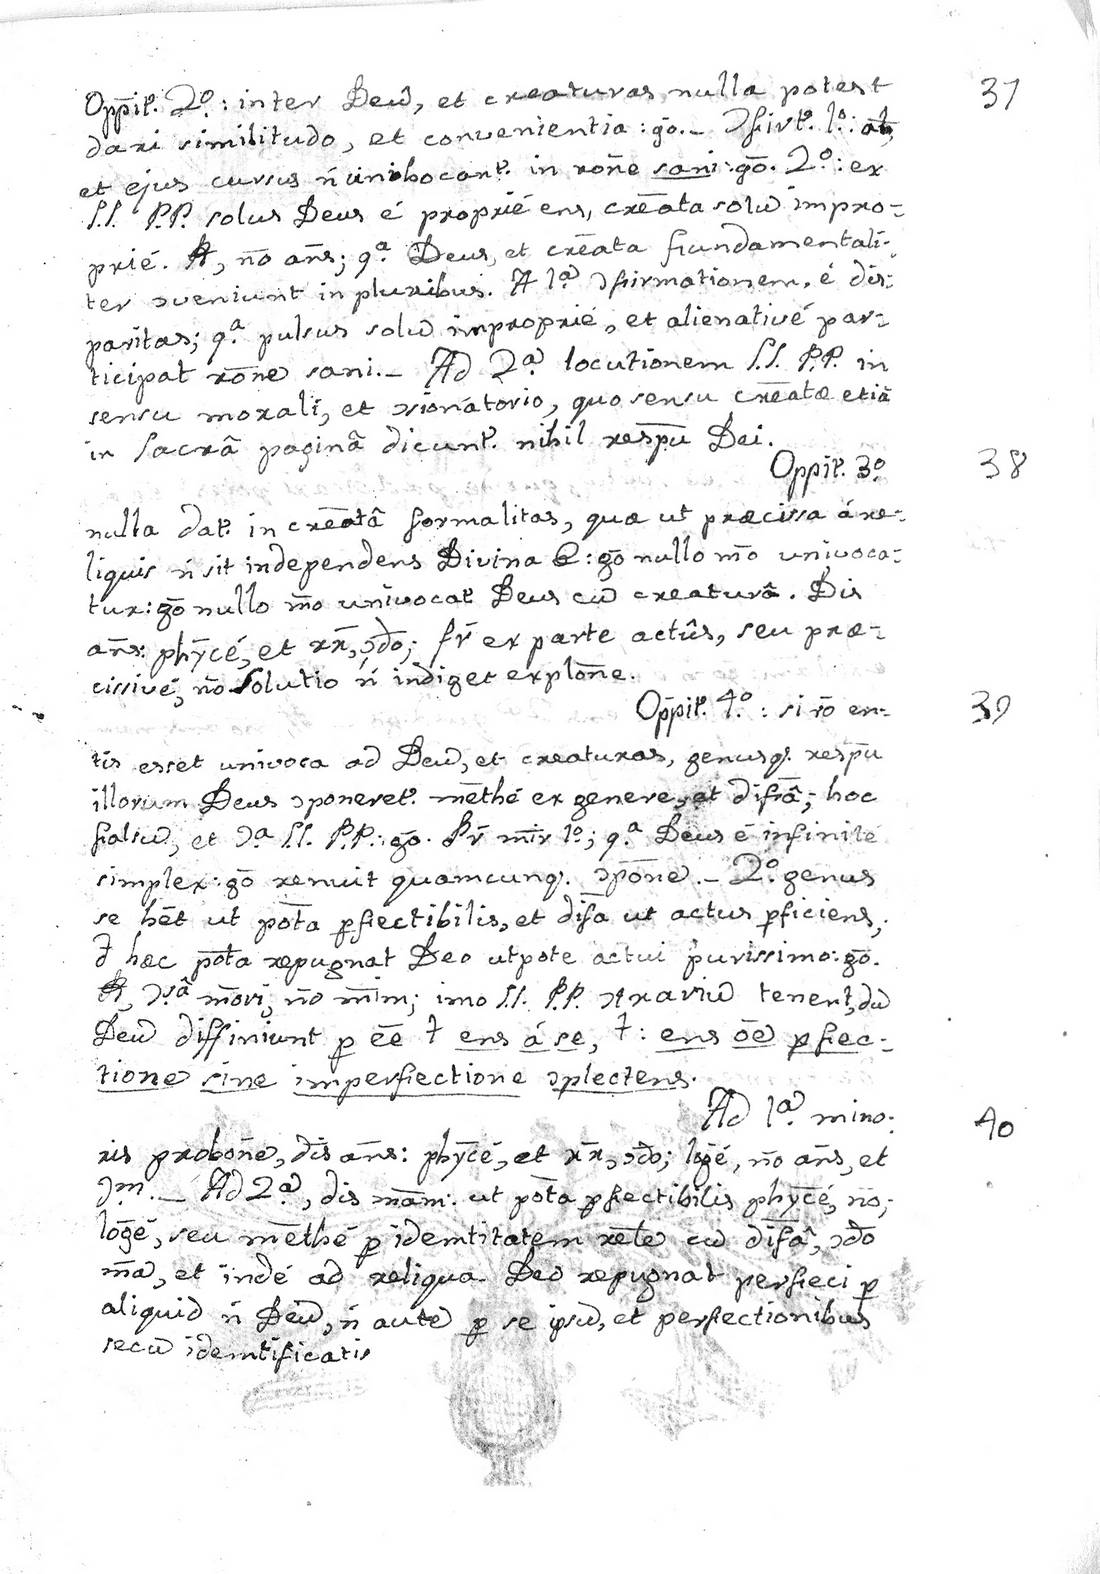 Oppit. 2º: inter Deũ, et creaturas, nulla potest 37
dari similitudo, et convenientia: gõ. _ Ɔfirt. 1º:
et ejus cursus ñ univocant. in roñe sani: gõ. 2º: ex
S.S. P.P. solus Deus é proprié ens, creãta solũ impro-
prié. R, ño añs; qª Deus, et creãta fundamentali-
ter ɔveniunt in pluribus. A 1ª ɔfirmationem, é dis-
paritas; qª pulsus solũ improprié, et alienativé par-
ticipat roñe sani. _ Ad 2ª locutionem S.S. P.P. in
sensu morali, et ɔionatorio, quo sensu creãtæ etiã
in Sacrâ paginâ dicunt. nihil respu Dei.
Oppit. 3º 38
nulla dat. in creãtâ formalitas, quæ ut præcissa á re-
liquis ñ sit independens Divina : gõ nullo mõ univoca-
tur: gõ nullo mõ univocat Deus cũ creaturâ. Dis
añs: phycé, et rr̃, ɔdo; sr̃ ex parte actûs, seu præ-
cissivé, ño Solutio ñ indiget explõne.
Oppit. 4º: si rõ en- 39
tis esset univoca ad Deũ, et creaturas, genusq. respu
illorum Deus ɔponeret. mẽthé ex genere, et difrâ; hoc
falsũ, et Ɔª S.S. P.P.: gõ. Pr̃ mir̃ 1º; qª Deus é infinité
simplex: gõ renuit quamcunq. ɔpõne. _ 2º: genus
se hẽt ut potã pfectibilis, et difã ut actus pficiens,
hæc potã repugnat Deo utpote actui purissimo: gõ.
R, Ɔsâ mori, ño mim̃; imo S.S. P.P. ɔtrariũ tenent, dũ
Deũ diffiniunt p eẽ ens á se, : ens oẽ pfec-
tione sine imperfectione ɔplectens.
Ad 1ª mino- 40
ris probõne, dis añs: phycé, et rr̃, ɔdo; logé, ño añs, et
Ɔm. _ Ad 2ª, dis mam̃. ut potã pfectibilis phycé, ño;
logé, seu mẽthé p idemtitatem relẽ cũ difâ, ɔdo
mã, et indé ad reliqua. Deo repugnat perfici p
aliquid ñ Deũ, ñ autẽ p se ipsũ, et perfectionibus
secũ idemtificatis